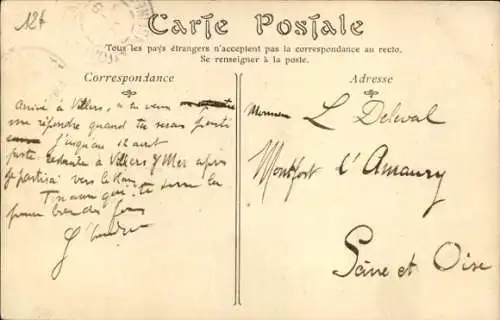 12f
Carte Postale
Tous les pays étrangers n'acceptent pas la correspondance au recto.
Se renseigner à la poste.
Correspondance
Adresse
Arrivé à Villers, si tu veux
me répondre quand tu seras parti
jusqu'au 12 août
poste restante à Villers s/ Mer après
je partirai vers le
Ton ami qui te serre la
L Deleval
Montfort l'Amaury
Seine et Oise